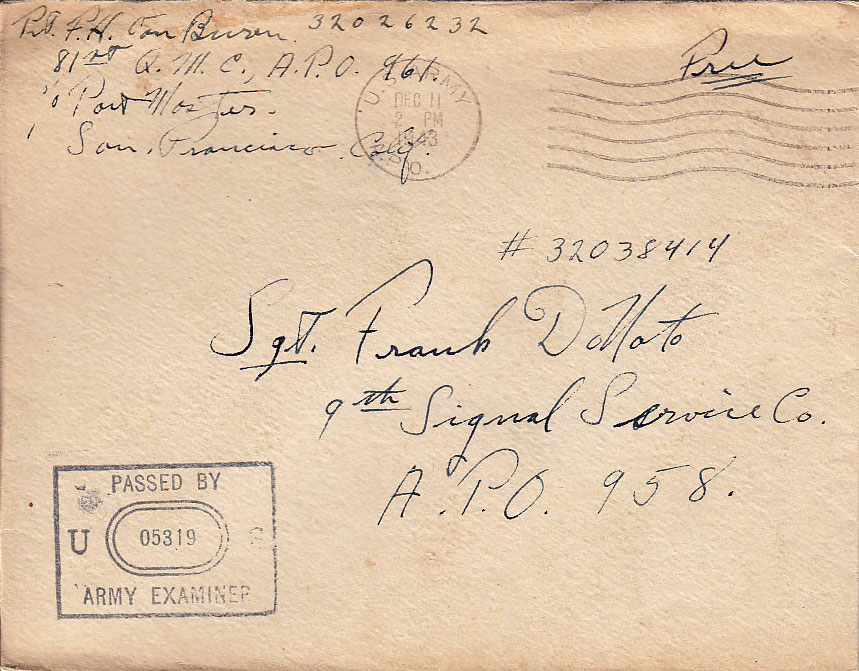 Pvt. F.H. Van Buren. 32026232
81st Q.M.C., A.P.O. 961.
c/o Post Master.
San. Francisco. Calif.
U.S. ARMY
DEC 11
2 PM
1943
P.O.
Free
# 32038414
Sgt. Frank DoMato
9th Signal Service Co.
A.P.O. 958.
PASSED BY
U 05319 S
ARMY EXAMINER